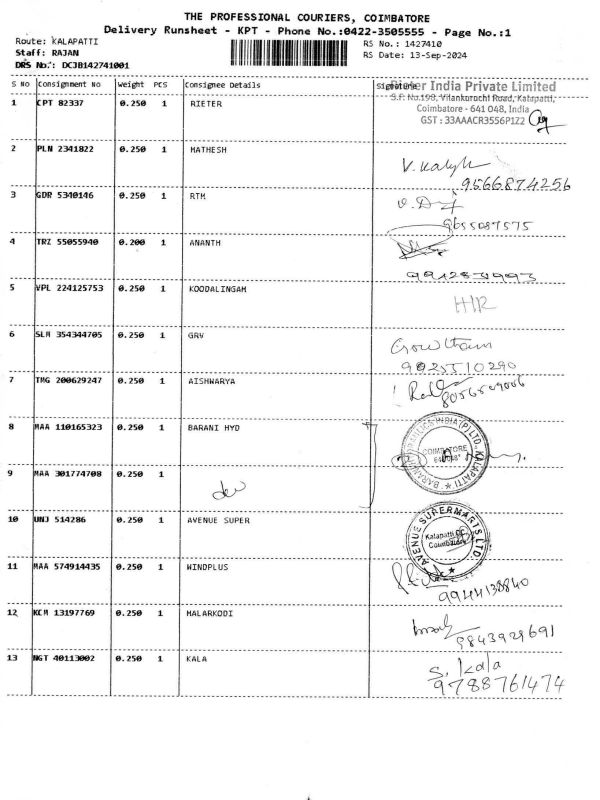 THE PROFESSIONAL COURIERS, COIMBATORE
Delivery Runsheet - KPT - Phone No.:0422-3505555 - Page No.:1
Route: KALAPATTI
RS No.: 1427410
Staff: RAJAN
RS Date: 13-Sep-2024
DRS No.: DCJB142741001
S No Consignment No Weight PCS Consignee Details Signature
Rieter India Private Limited
S.F. No.198, Vilankuruchi Road, Kalapatti,
Coimbatore - 641 048, India
GST : 33AAACR3556P1Z2
1 CPT 82337 0.250 1 RIETER
2 PLN 2341822 0.250 1 MATHESH
9566874256
3 GDR 5340146 0.250 1 RTM
9655087575
4 TRZ 55055940 0.200 1 ANANTH
5 VPL 224125753 0.250 1 KOODALINGAM
H/R
6 SLM 354344705 0.250 1 GRV
Gowtham
9025510290
7 TMG 200629247 0.250 1 AISHWARYA
8 MAA 110165323 0.250 1 BARANI HYD
COIMBATORE
9 MAA 301774708 0.250 1
10 UNJ 514286 0.250 1 AVENUE SUPER
AVENUE SUPERMARTS LTD.
Kalapatti DC
Coimbatore
11 MAA 574914435 0.250 1 WINDPLUS
9944138840
12 KCM 13197769 0.250 1 MALARKODI
9843929691
13 NGT 40113002 0.250 1 KALA
S. kala
9788761474